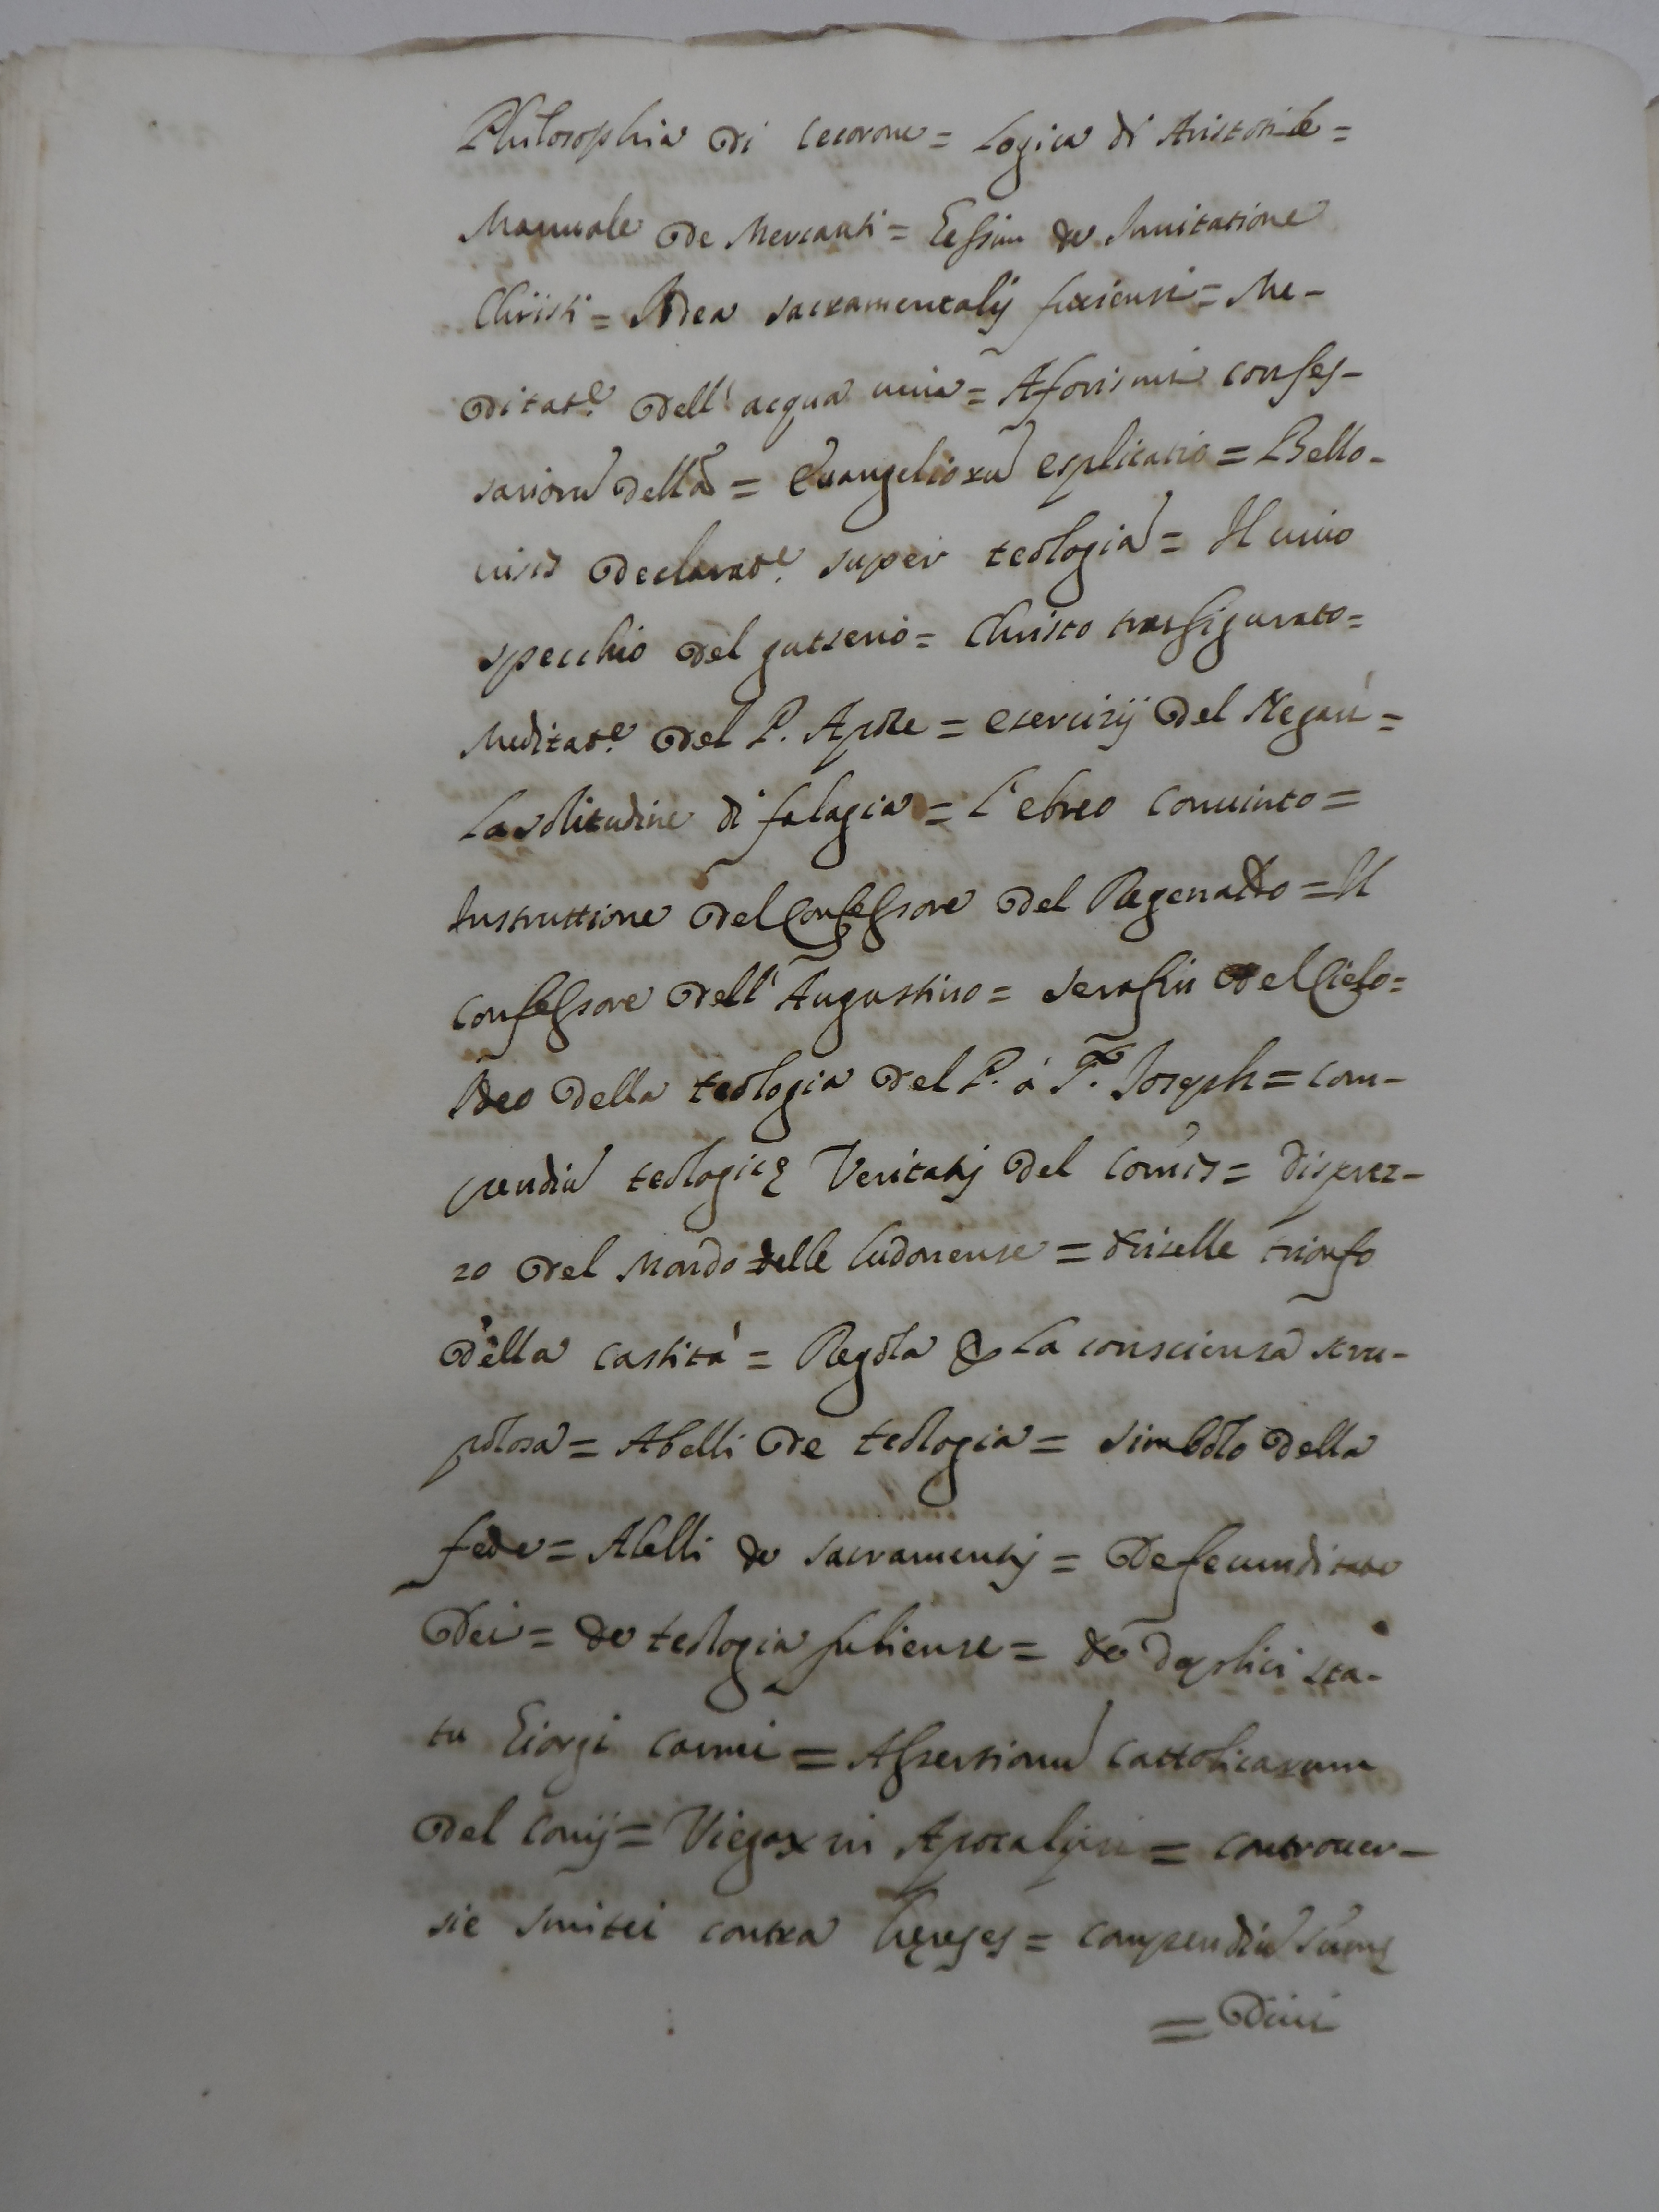 Philosophia di Cecerone = Logica di Aristotile =
Manuale de Mercanti = Gessim de Imitatione
Christi = Idea sacramentalij = Me-
ditat.e dell' acqua uiua = Aforismi confes-
sarioru della = Euangelioxu esplicatio = Bello-
uisis declarat.e super teologia = Il uiuo
specchio del = Christo trasfigurato =
Meditat.e del P. Aplle = esercizij del Negari =
La solitudine di falagia = L'ebreo conuinto =
Instruttione del Confessore del Pegenatto = Il
Confessore dell' Augustino = Serafin del Cielo =
Ideo della teologia del P. à S. Joseph = Com-
pendiu teologicę Veritatij del = disprez-
zo del Mondo delle = trionfo
della castità = Regola & La consciensa scru-
polosa = Abelli de teologia = Simbolo della
fede = Abelli de sacramentij = De fecunditate
Dei = de teologia = de duplici sta-
tu Giorgi = Assertionu Cattolicarum
del = Viegax in Apocalipsi = Controuer-
sie contra hęreses = Compendiu Sumę
= Diui